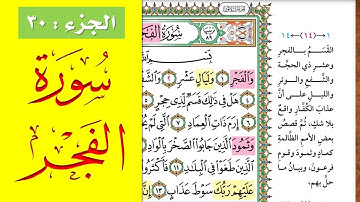 الجزء : ٣٠
سُورَة
الفَجر
سُورَةُ الفَجْرِ
٨٩
وَالْفَجْرِ ١ وَلَيَالٍ عَشْرٍ ٢ وَالشَّفْعِ
٤ هَلْ فِي ذَٰلِكَ قَسَمٌ لِّذِي حِجْرٍ
٦ إِرَمَ ذَاتِ الْعِمَادِ ٧ الَّتِي لَمْ
وَثَمُودَ الَّذِينَ جَابُوا الصَّخْرَ بِالْوَادِ
الَّذِينَ طَغَوْا فِي الْبِلَادِ ١١ فَأَكْثَرُوا
عَلَيْهِمْ رَبُّكَ سَوْطَ عَذَابٍ ١٣ إِنَّ
١٤←(١٤)←١
القَسَمُ بالفجرِ
وعشرِ ذي الحجَّةِ
والشفعِ والوترِ
والليلِ على أنَّ
عذابَ الكفَّارِ واقعٌ
بلا شكٍ، ثُمَّ قصصُ
بعضِ الأممِ الظالمةِ
كعادٍ وثمودَ وقومِ
فرعونَ، وبيانُ ما
حلَّ بهم،